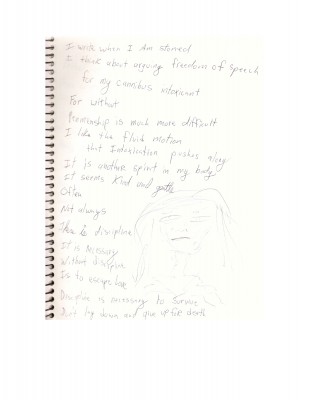 I write when I Am stoned
I think about arguing freedom of speech
for my cannibus intoxicant
For without
Penmenship is much more difficult
I like the fluid motion
that Intoxication pushes along
It Is another spirit in my body
It seems Kind and gentle
Often
Not always
There is discipline
It is necessary
Without discipline
Is to escape love
Discipline is necessary to survive
Don't lay down and give up for death